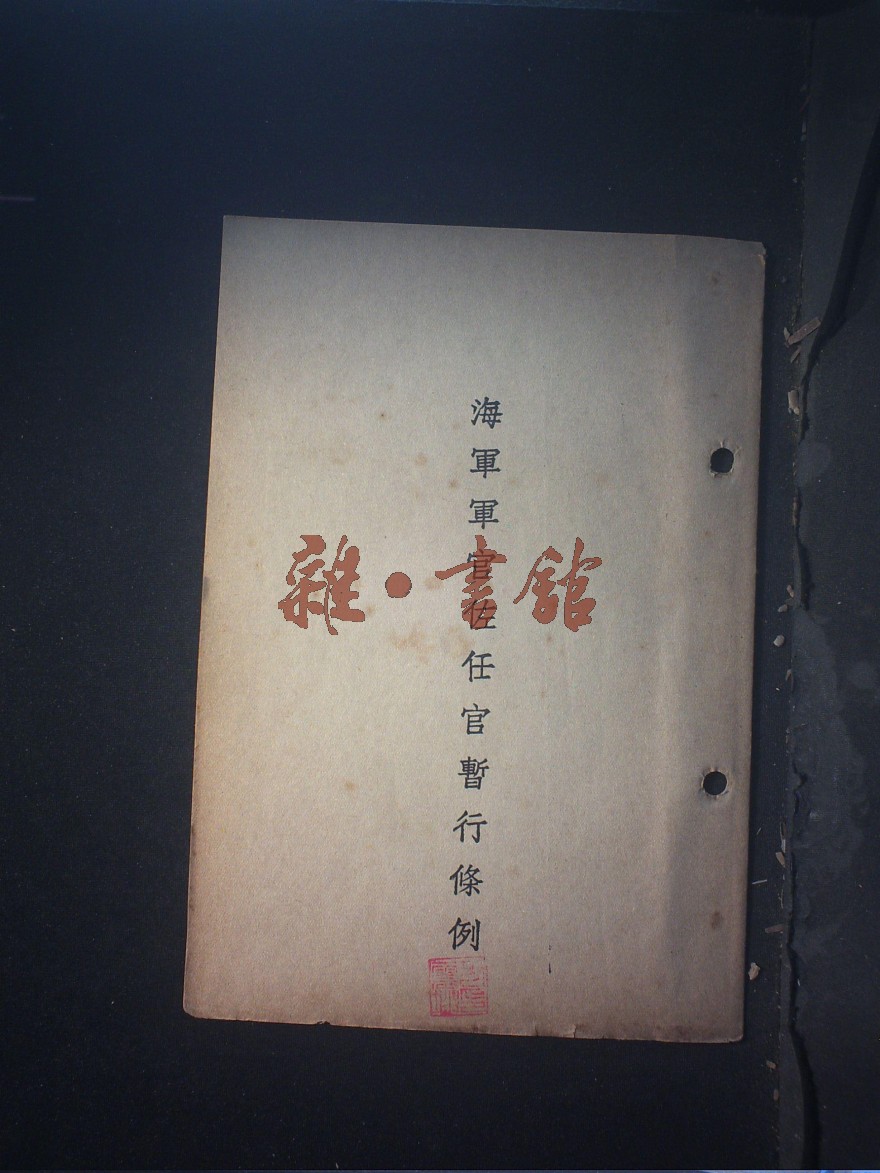 海軍軍官佐任官暫行條例
雜·書館